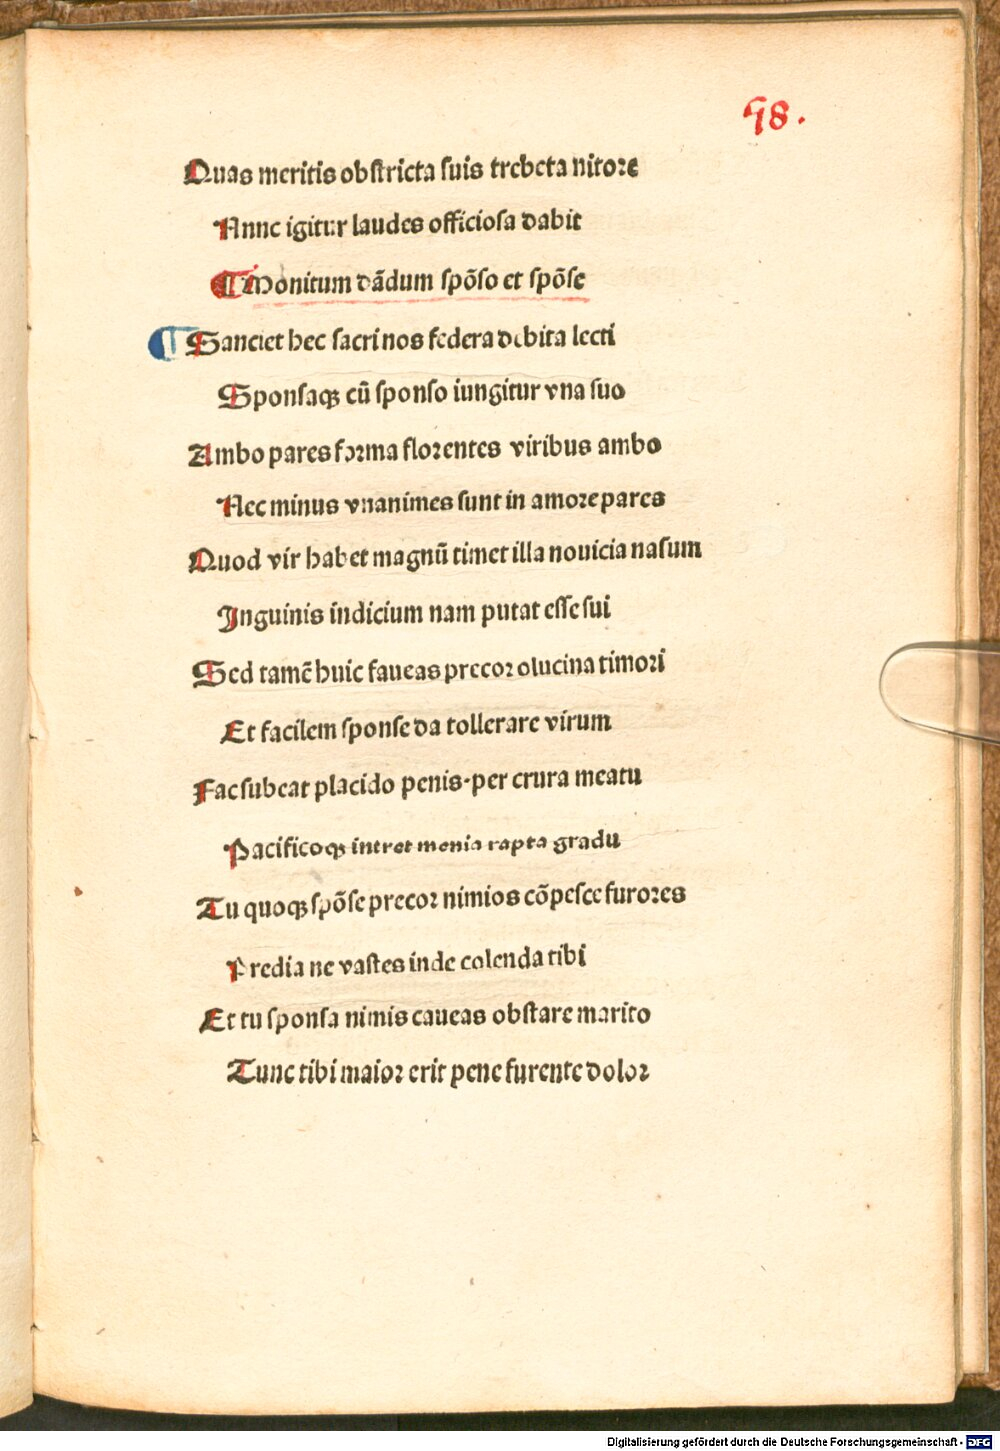 58.
Quas meritis obstricta suis trebeta nitore
Nunc igitur laudes officiosa dabit
¶ Monitum dādum spōso et spōse
¶ Sanctet hec sacri nos federa debita lecti
Sponsaqꝫ cū sponso iungitur vna suo
Ambo pares forma florentes viribus ambo
Nec minus vnanimes sunt in amore pares
Quod vir habet magnū timet illa nouicia nasum
Inguinis indicium nam putat esse sui
Sed tamē huic faueas precor olucina timori
Et facilem sponse da tollerare virum
Fac subeat placido penis·per crura meatu
Pacificoqꝫ intret menia rapta gradu
Tu quoqꝫ spōse precor nimios cōpesce furores
Predia ne vastes inde colenda tibi
Et tu sponsa nimis caueas obstare marito
Tunc tibi maior erit pene furente dolor
Digitalisierung gefördert durch die Deutsche Forschungsgemeinschaft - DFG